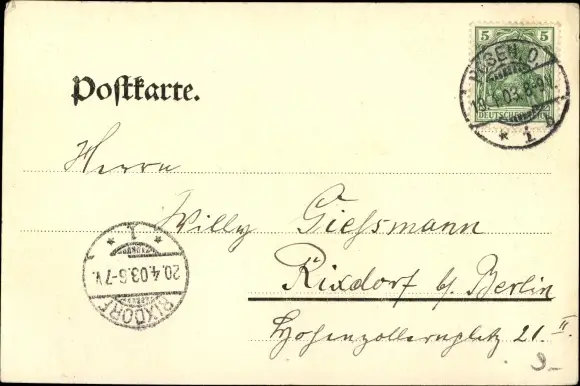 5 5
POSEN. O.
.4.03.8-9N.
DEUTSCHES REICH
* 1 b
Postkarte.
Herrn
Willy Giessmann
Rixdorf b/ Berlin
Hohenzollernplatz 21. II.
* 1 *
20.4.03.6-7V.
RIXDORF